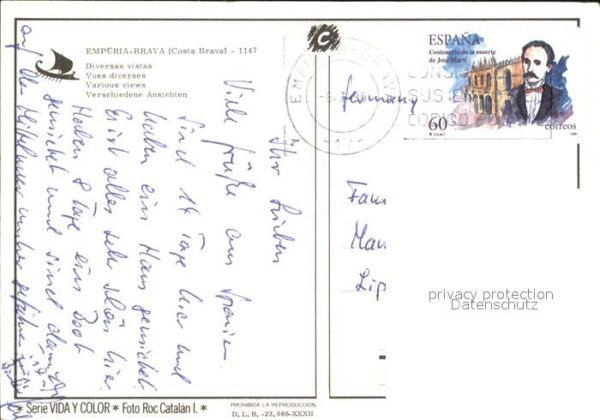 EMPÚRIA-BRAVA (Costa Brava) - 1147
Diversas vistas
Vues diverses
Various views
Verschiedene Ansichten
ESPAÑA
Centenario de la muerte
de José Martí
60
correos
EMPU
BRAVA
CONSIG
SUS EN
CODIGO PO
Germany
Ihr Lieben
Viele Grüße aus Spanien.
Sind 14 Tage hier und
haben ein Haus gemietet.
Es ist alles sehr schön hier.
Haben 8 Tage ein Boot
gemietet und sind damit
auf dem Mittelmeer umher gefahren
Fam
Lip
privacy protection
Datenschutz
* Serie VIDA Y COLOR * Foto Roc Catalán I. *
PROHIBIDA LA REPRODUCCION
D. L. B. -23, 686-XXXII